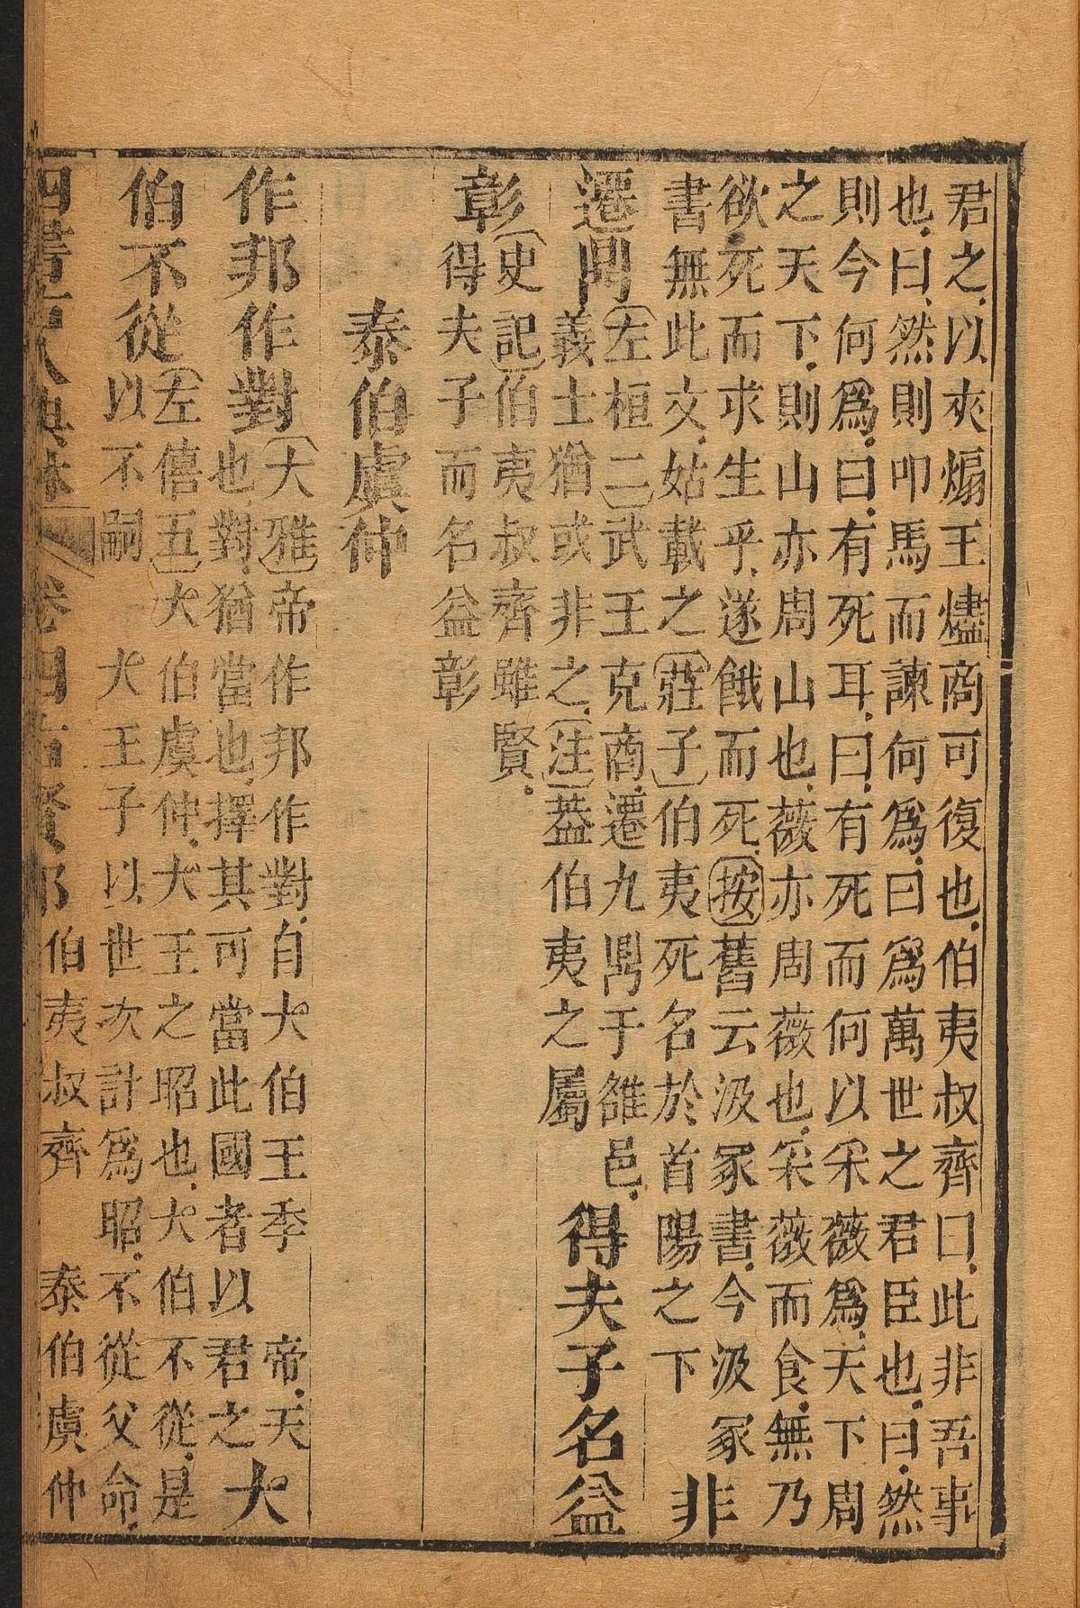 君之以夾煽王燼商可復也伯夷叔齊曰此非吾事
也曰然則叩馬而諫何爲曰爲萬世之君臣也曰然
則今何爲曰有死耳曰有死而何以采薇爲天下周
之天下則山亦周山也薇亦周薇也采薇而食無乃
欲死而求生乎遂餓而死按舊云汲冢書今汲冢
書無此文姑載之莊子伯夷死名於首陽之下
非
遷鬥
左桓二武王克商遷九鼎于雒邑
義士猶或非之注葢伯夷之屬
得夫子名益
彰
史記伯夷叔齊雖賢
得夫子而名益彰
泰伯虞仲
作邦作對
大雅帝作邦作對自大伯王季帝天
也對猶當也擇其可當此國者以君之
大
伯不從
左僖五大伯虞仲大王之昭也大伯不從是
以不嗣大王子以世次計爲昭不從父命
卷四古賢部伯夷叔齊 泰伯虞仲